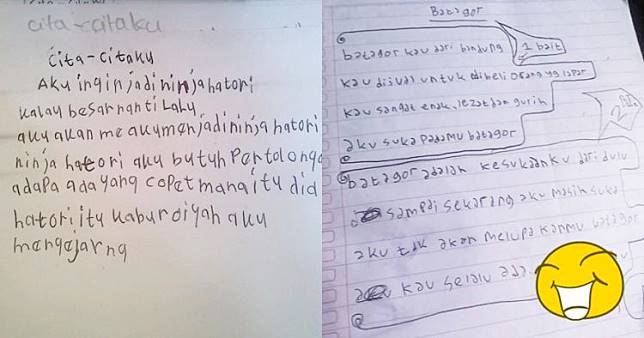 cita-citaku
Cita-Citaku
Aku ingin jadi ninja hatori
kalau besar nanti Lalu
aku akan me akumenjadi ninja hatori
ninja hatori aku butuh Pertolong
adapa ada yang copet mana itu did
hatori itu kabur diyah aku
mengejarng
Batagor
batagor kau dari bindung
1 bait
kau dijual untuk dibeli orang yg lapar
kau sangat enak, lezat dan gurih
aku suka padamu batagor
2
batagor adalah kesukaanku dari dulu
sampai sekarang aku masih suka
aku tdk akan melupakanmu batagor
kau selalu ada